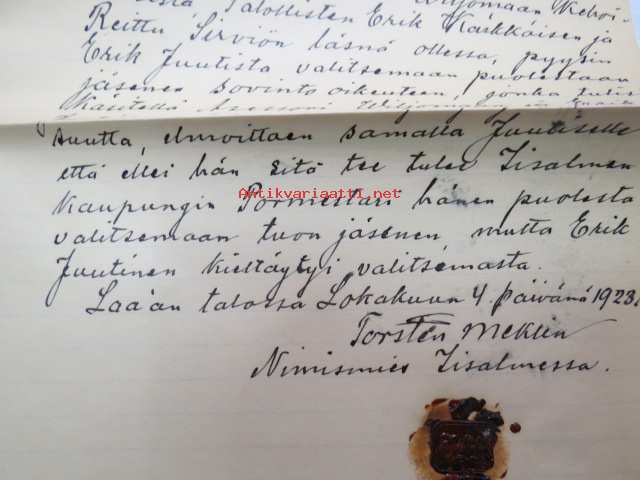 Talollisten Erik Käkkäisen ja
Reittu Serviön läsnä ollessa, pyysin
Erik Juutista valitsemaan puolestaan
jäsenen sovinto oikeuteen, jonka tulisi
käsitellä
suutta, ilmoittaen samalla Juutiselle
että ellei hän sitä tee tulee Iisalmen
Antikvariaatti.net
kaupungin Pormestari hänen puolesta
valitsemaan tuon jäsenen, mutta Erik
Juutinen kieltäytyi valitsemasta.
Laa'an talossa Lokakuun 4. päivänä 1923.
Torsten Meklin
Nimismies Iisalmessa.